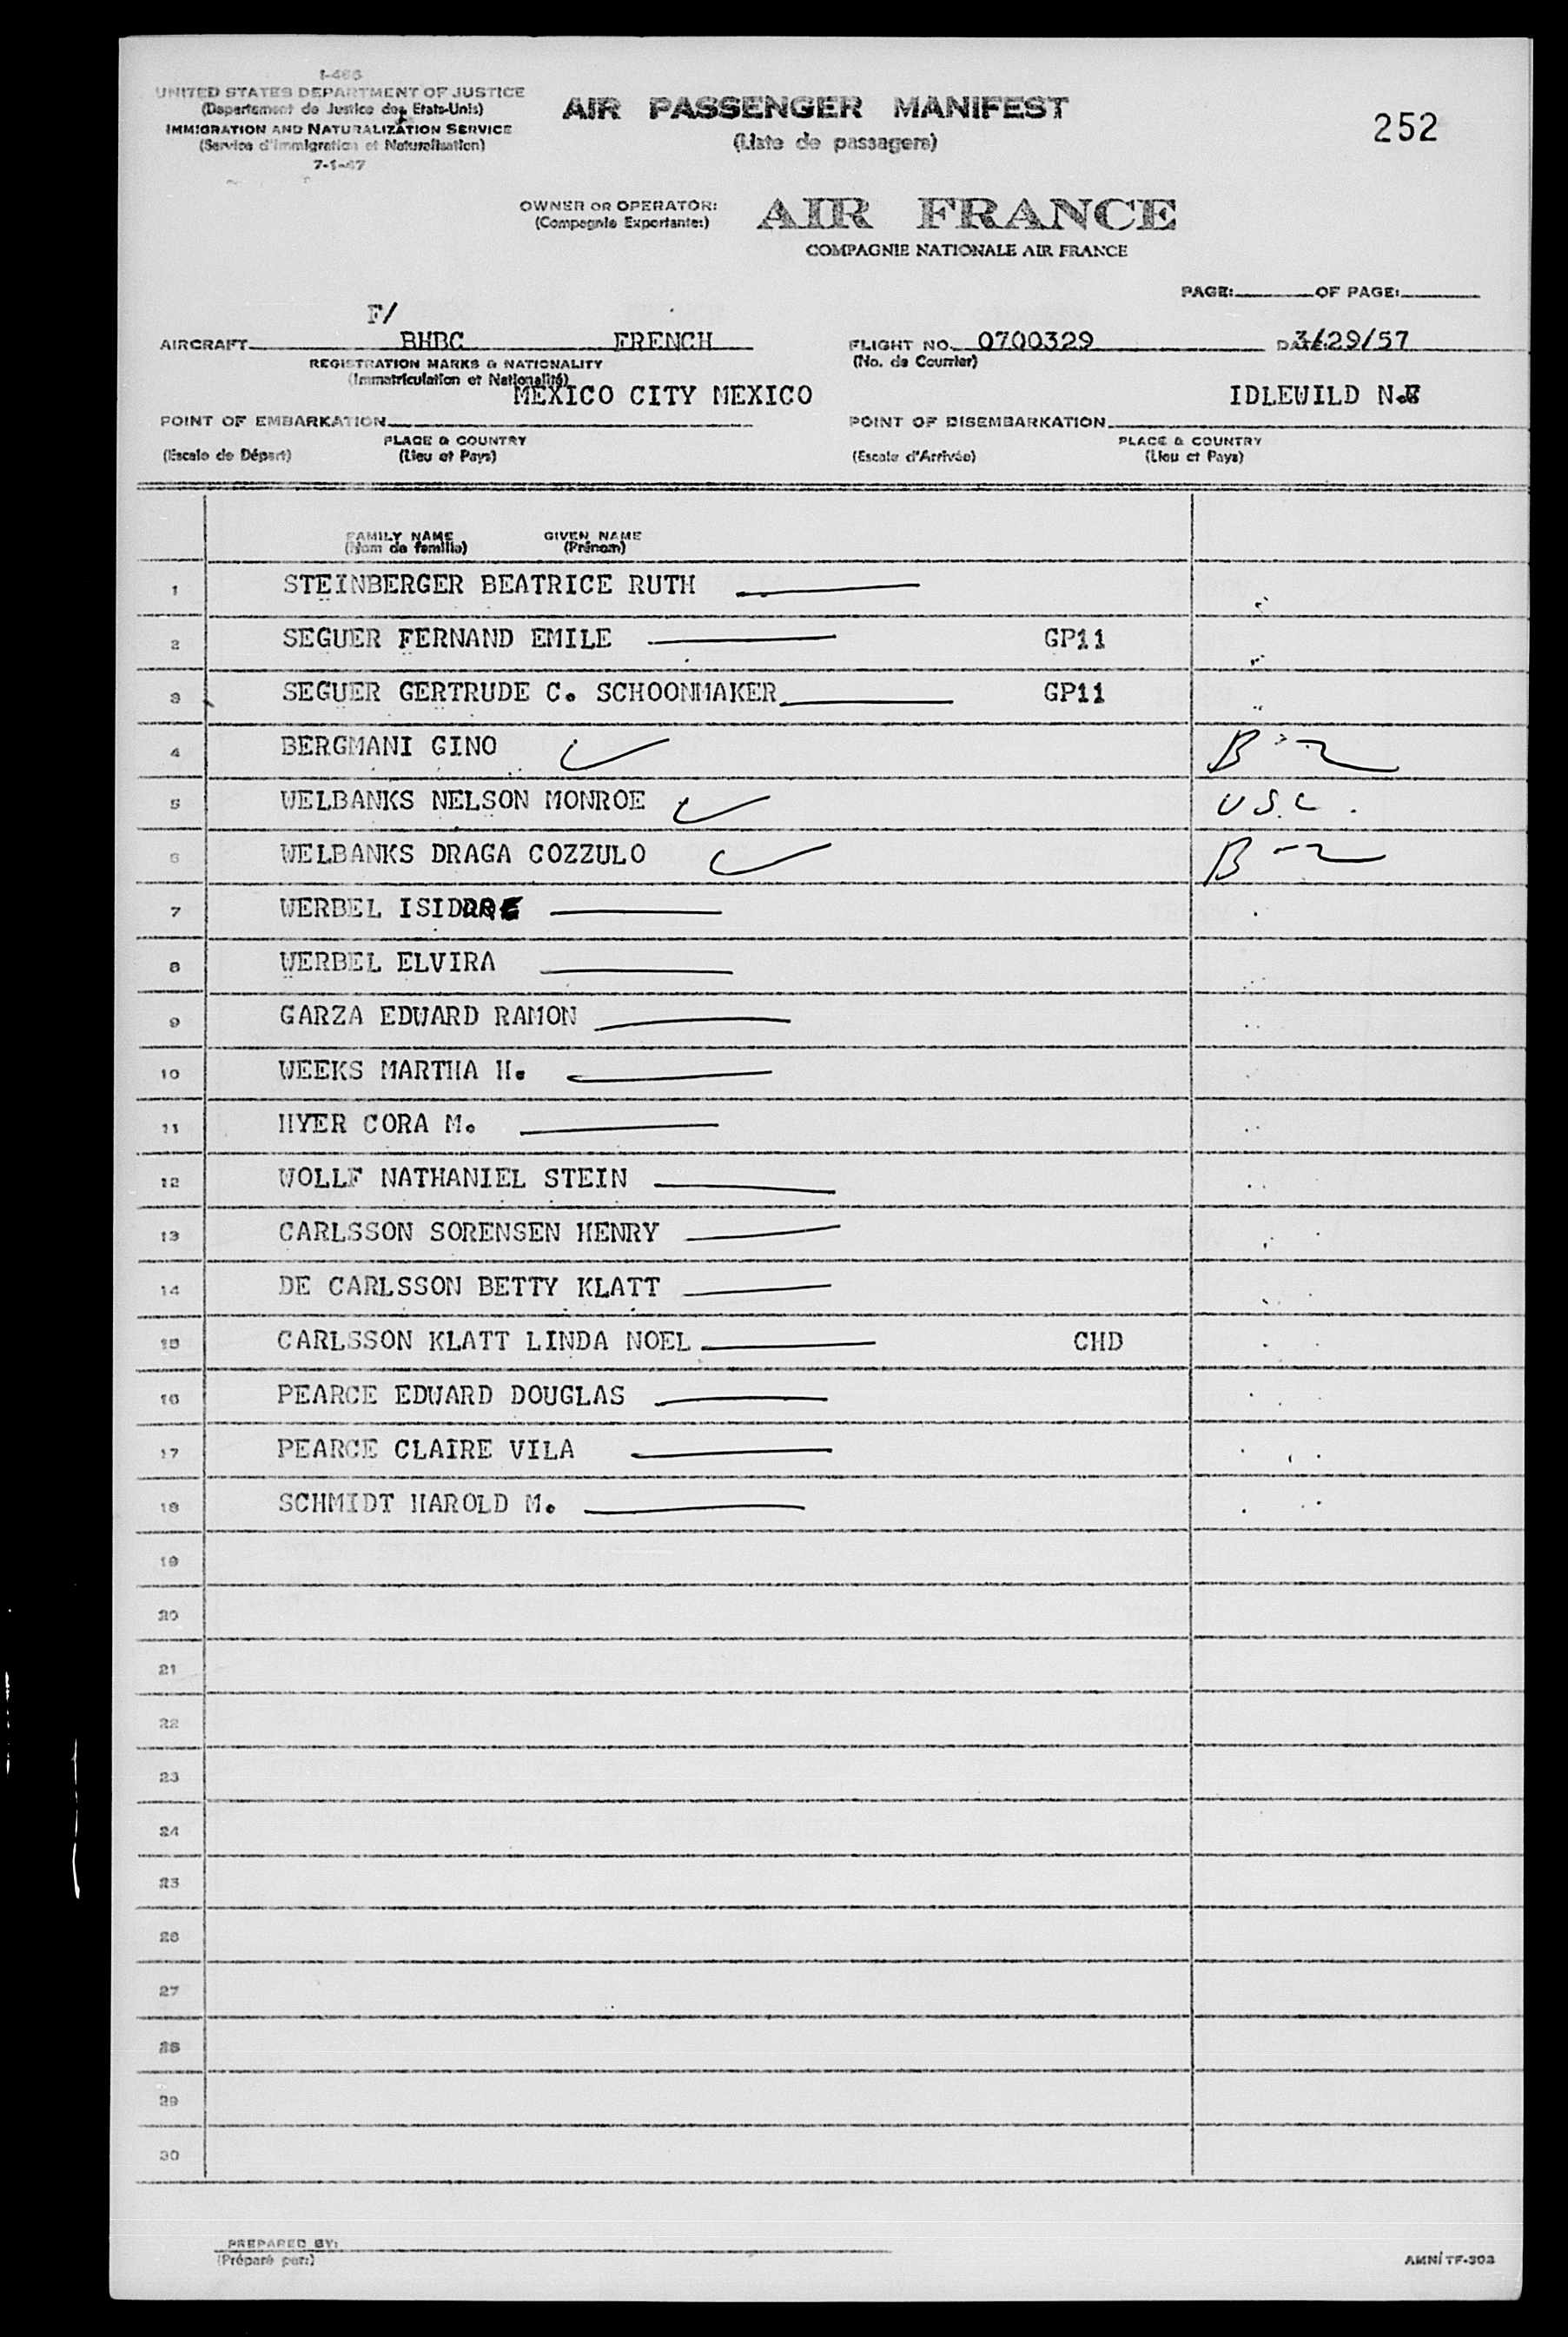 I-466
UNITED STATES DEPARTMENT OF JUSTICE
(Departement de Justice des Etats-Unis)
IMMIGRATION AND NATURALIZATION SERVICE
(Service d'Immigration et Naturalisation)
7-1-47
AIR PASSENGER MANIFEST
(Liste de passagers)
252
OWNER OR OPERATOR: AIR FRANCE
(Compagnie Exportante:)
COMPAGNIE NATIONALE AIR FRANCE
PAGE: OF PAGE:
F/
AIRCRAFT BHBC FRENCH FLIGHT NO. 0700329 DATE: 3/29/57
REGISTRATION MARKS & NATIONALITY (No. de Courrier)
(Immatriculation et Nationalité)
MEXICO CITY MEXICO IDLEWILD
POINT OF EMBARKATION POINT OF DISEMBARKATION
PLACE & COUNTRY PLACE & COUNTRY
(Escale de Départ) (Lieu et Pays) (Escale d'Arrivée) (Lieu et Pays)
FAMILY NAME GIVEN NAME
(Nom de famille) (Prénom)
1 STEINBERGER BEATRICE RUTH
2 SEGUER FERNAND EMILE GP11
3 SEGUER GERTRUDE C. SCHOONMAKER GP11
4 BERGMANI GINO B-2
5 WELBANKS NELSON MONROE U.S.C.
6 WELBANKS DRAGA COZZULO B-2
7 WERBEL ISIDORE
8 WERBEL ELVIRA
9 GARZA EDWARD RAMON
10 WEEKS MARTHA H.
11 HYER CORA M.
12 WOLLF NATHANIEL STEIN
13 CARLSSON SORENSEN HENRY
14 DE CARLSSON BETTY KLATT
15 CARLSSON KLATT LINDA NOEL CHD
16 PEARCE EDWARD DOUGLAS
17 PEARCE CLAIRE VILA
18 SCHMIDT HAROLD M.
19
20
21
22
23
24
25
26
27
28
29
30
PREPARED BY:
(Préparé par:)
AMNI TF-303